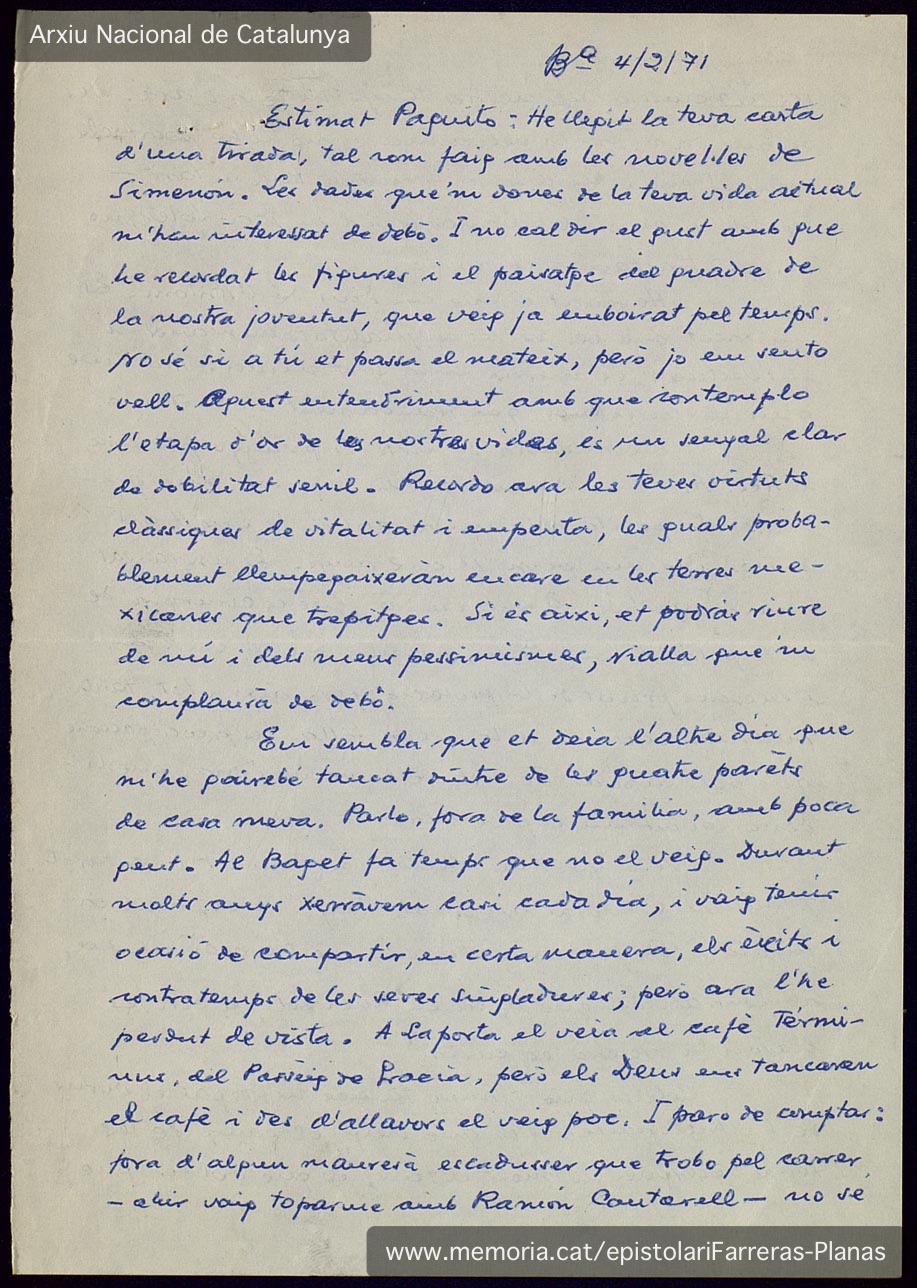 Arxiu Nacional de Catalunya
Bª 4/2/71
Estimat Paquito: He llegit la teva carta
d'una tirada, tal com faig amb les novel·les de
Simenón. Les dades que'm dones de la teva vida actual
m'han interessat de debò. I no cal dir el gust amb que
he recordat les figures i el paisatge del quadre de
la nostra joventut, que veig ja emboirat pel temps.
No sé si a tú et passa el mateix, però jo em sento
vell. Aquest entendriment amb que contemplo
l'etapa d'or de les nostres vides, és un senyal clar
de debilitat senil. Recordo ara les teves virtuts
clàssiques de vitalitat i empenta, les quals proba-
blement t'empegaixeràn encare en les terres me-
xicanes que trepitges. Si és així, et podràs riure
de mí i dels meus pessimismes, rialla que'm
complaurà de debò.
Em sembla que et deia l'altre dia que
m'he gairebé tancat dintre de les quatre parèts
de casa meva. Parlo, fora de la familia, amb poca
gent. Al Baget fa temps que no el veig. Durant
molts anys xerràvem casi cada dia, i vaig tenir
ocasió de compartir, en certa manera, els èxits i
contratemps de les seves singladures; però ara l'he
perdut de vista. A Laporta el veia al cafè Térmi-
nus, del Passeig de Gracia, però els Deus ens tancaren
el cafè i des d'allavors el veig poc. I paro de comptar:
fora d'algun manresà escadusser que trobo pel carrer
- ahir vaig toparme amb Ramón Cantarell - no sé
www.memoria.cat/epistolariFarreras-Planas